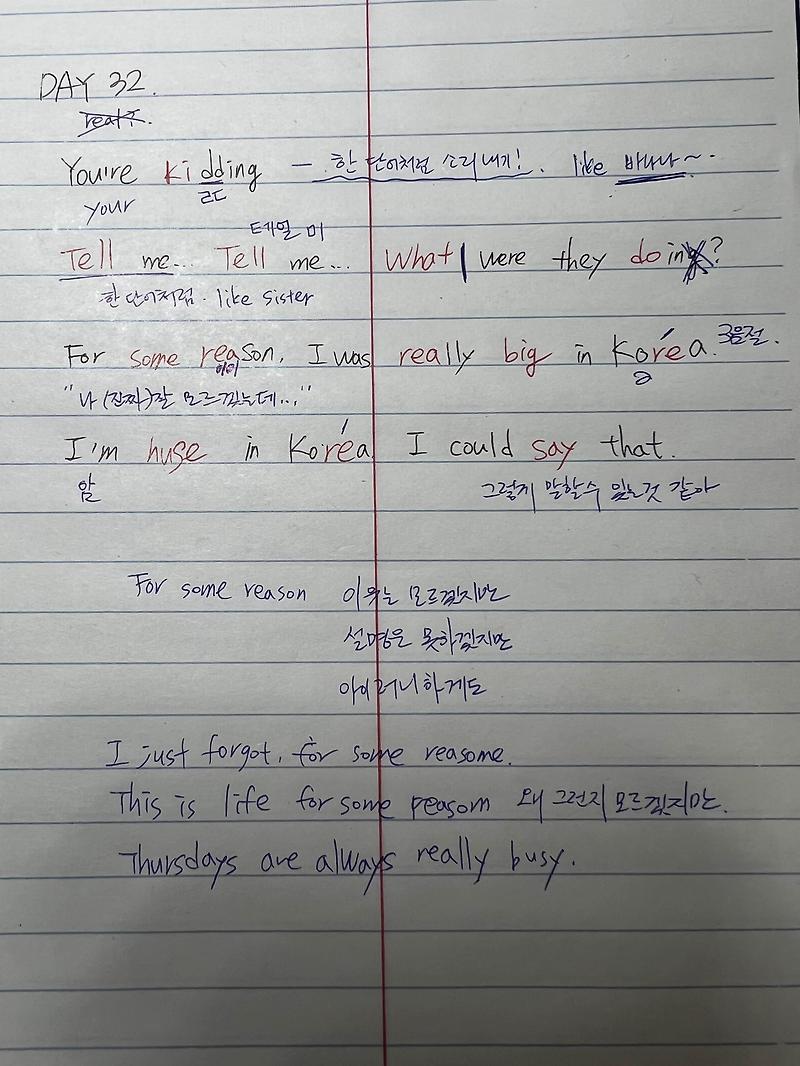 DAY 32.
You're kidding — 한 단어처럼 소리내기!. like 바나나~.
your
테일 미
Tell me... Tell me... What | were they doin?
한 단어처럼. like sister
For some reason, I was really big in Koréa. 3음절.
"나 (진짜)잘 모르겠는데..."
I'm huge in Koréa I could say that.
암 그렇게 말할수 있는것 같아
For some reason 이유는 모르겠지만
설명은 못하겠지만
아이러니하게도
I just forgot, for some reasome.
This is life for some reasom 왜 그런지 모르겠지만.
Thursdays are always really busy.